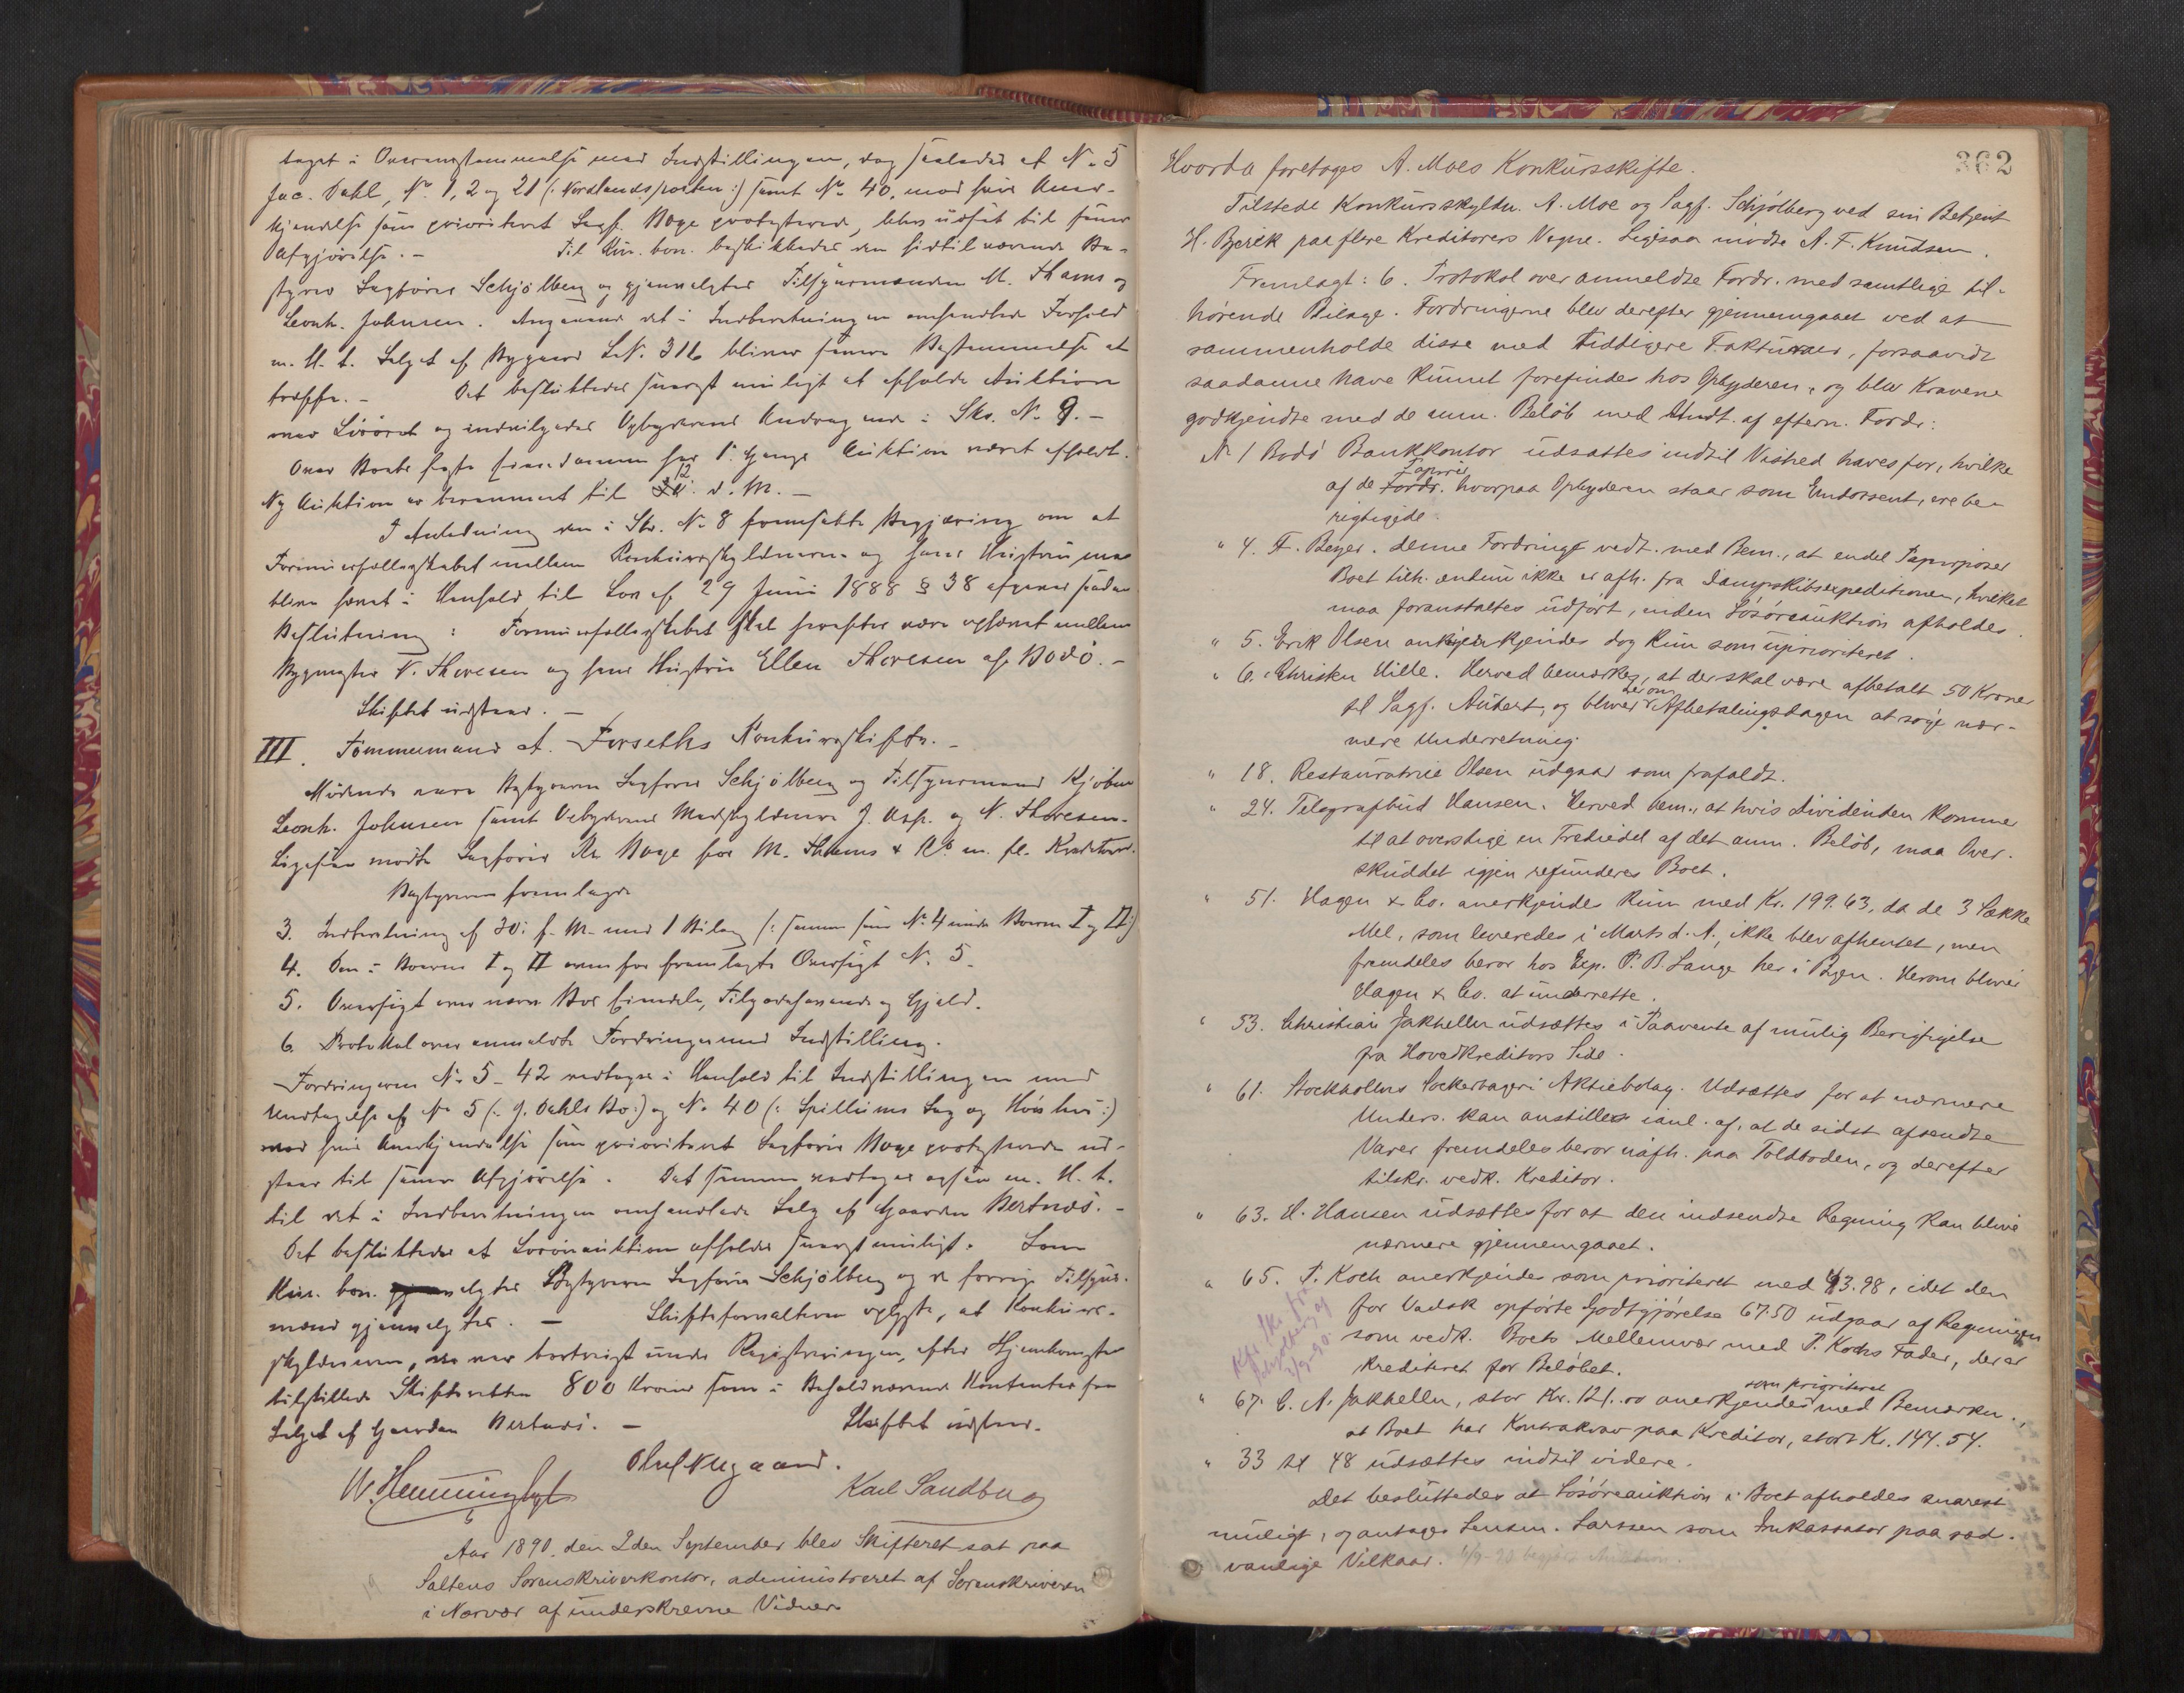 taget i Overensstemmelse med Indstillingen, dog saaledes at No 5
Jac. Dahl, No 1, 2 og 21 (: Nordlandsposten :) samt No 40, mod hvis Aner-
kjendelse som prioriteret Sagf. Boge protesterede, blev udsat til senere
Afgjörelse. – Til Kur. bon. beskikkedes den hidtilværende Be-
styrer Sagförer Schjölberg og gjenvalgtes Tilsynsmændene M. Thams og
Leonh. Johnsen. Angaaende det i Indberetningen omhandlede Forhold
m. H. t. Salget af Bygaard L.N. 316 bliver senere Bestemmelse at
træffe. – Det besluttedes snarest muligt at afholde Auktion
over Lösöret og indvilgedes Opbyderens Andragende i Skr. No 9. –
Over Boets faste Eiendomme har 1. Gangs Auktion været afholdt.
12
Ny Auktion er berammet til d. M. –
I Anledning den i Skr. No 8 fremsatte Begjæring om at
Formuesfællesskabet mellem Konkursskyldneren og hans Hustru maa
blive hævet i Henhold til Lov af 29 Juni 1888 § 38 afgaves saadan
Beslutning: Formuesfællesskabet skal herefter være ophævet mellem
Bygmester N. Thoresen og hans Hustru Ellen Thoresen af Bodö. –
Skiftet udstaar. –
III. Tömmermand A. Forseths Konkursskifte. –
Mödende vare Bestyreren Sagförer Schjölberg og Tilsynsmand Kjöbm
Leonh. Johnsen samt Opbyderens Medskyldnere J. Asp. og N. Thoresen.
Ligesaa mödte Sagförer Boge for M. Thams & Co m. fl. Kreditorer.
Bestyreren fremlagde
3. Indberetning af 30. f. M. med 1 Bilag (: samme som No 4 under Boerne I og II :)
4. Den i Boerne I og II ovenfor fremlagte Oversigt No 5.
5. Oversigt over nærv. Bos Eiendele, Tilgodehavende og Gjæld.
6. Protokol over anmeldte Fordringer med Indstilling.
Fordringerne No 5 – 42 vedtoges i Henhold til Indstillingen med
Undtagelse af No 5 (: J. Dahls Bo :) og No 40 (: Spillums Sag og Hövleri :)
mod hvis Anerkjendelse som prioriteret Sagförer Boge protesterede ud-
staar til senere Afgjörelse. Det samme vedtoges ogsaa m. H. t.
til det i Indberetningen omhandlede Salg af Gaarden Bertnæs. –
Det besluttedes at Lösöreauktion afholdes snarest muligt. Som
Kur. bon. valgtes Bestyreren Sagförer Schjölberg og de forrige Tilsyns-
mænd gjenvalgtes. – Skifteforvalteren oplyste, at Konkurs-
skyldneren, der var bortreist under Registreringen, efter Hjemkomsten
tilstillede Skifteretten 800 Kroner som i Behold værende Kontanter fra
Salget af Gaarden Bertnæs. – Skiftet udstaar.
Olaf Nygaard.
Karl Sandberg
Aar 1890, den 2den September blev Skifteret sat paa
Saltens Sorenskriverkontor, administreret af Sorenskriveren
i Nærvær af underskrevne Vidner
362
Hvorda foretoges A. Moes Konkursskifte.
Tilstede Konkursskyldn. A. Moe og Sagf. Schjölberg ved sin Betjent
H. Bjerck paa flere Kreditorers Vegne. Ligesaa mödte A. F. Knudsen.
Fremlagt: 6. Protokol over anmeldte Fordr. med samtlige til-
hörende Bilage. Fordringerne blev derefter gjennemgaaet ved at
sammenholde disse med tidligere Fakturaer, forsaavidt
saadanne have kunnet forefindes hos Opbyderen, og blev Kravene
godkjendte med de anm. Belöb med Undt. af eftern. Fordr:
No 1 Bodö Bankkontor udsættes indtil Vished haves for, hvilke
Papirer
af de Fordr. hvorpaa Opbyderen staar som Endossent, ere be-
rigtigede.
" 4. F. Beyer. denne Fordring vedt. med Bem., at endel Papirposer
Boet tilh. endnu ikke er afh. fra Dampskibsexpeditionen, hvilket
maa foranstaltes udfört, inden Lösöreauktion afholdes.
" 5. Erik Olsen anerkjendes dog kun som uprioriteret.
" 6. Christen Hille. Herved bemærkes, at der skal være afbetalt 50 Kroner
herom
til Sagf. Aubert, og bliver Afbetalingsdagen at söge nær-
mere Underretning.
" 18. Restauratrice Olsen udgaar som frafaldt.
" 24. Telegrafbud Hansen. Herved bem., at hvis Dividenden kommer
til at overstige en Trediedel af det anm. Belöb, maa Over-
skuddet igjen refunderes Boet.
" 51. Hagen & Co. anerkjendes kun med Kr. 199.63, da de 3 Sække
Mel, som leveredes i Marts d. A., ikke blev afhentet, men
fremdeles beror hos Exp. P. B. Lange her i Byen. Herom bliver
Hagen & Co. at underrette.
" 53. Christian Jakhelln udsættes i Paavente af mulig Berigtigelse
fra Hovedkreditors Side.
" 61. Stockholms Sockerbageri Aktiebolag. Udsættes for at nærmere
Unders. kan anstilles ianl. af, at de sidst afsendte
Varer fremdeles beror uafh. paa Toldboden, og derefter
tilskr. vedk. Kreditor.
" 63. H. Hansen udsættes for at den indsendte Regning kan blive
nærmere gjennemgaaet.
" 65. P. Koch anerkjendes som prioriteret med 43.98, idet den
for Vadsk opförte Godtgjörelse 67.50 udgaar af Regningen
som vedk. Boets Mellemvær med P. Kochs Fader, der er
krediteret for Belöbet.
som prioriteret
" 67. C. A. Jakhelln, stor Kr. 121.00 anerkjendes med Bemærkn.,
at Boet har Kontrakrav paa Kreditor, stort Kr. 144.54.
" 33 til 48 udsættes indtil videre.
Det besluttedes at Lösöreauktion i Boet afholdes snarest
muligt, og antages Lensm. Larssen som Inkassator paa sæd-
vanlige Vilkaar.